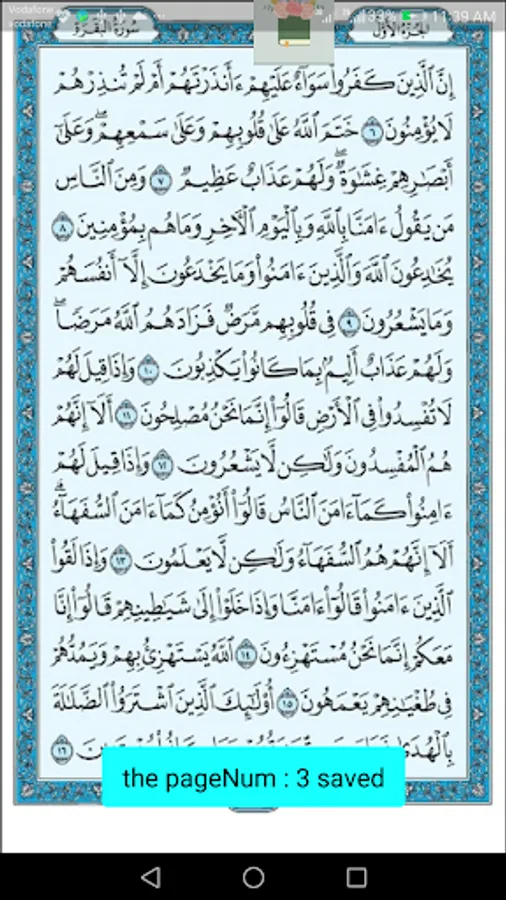 Vodafone
vodafone
33% 11:39 AM
سُورَةُ البَقَرَةِ
الجُزءُ الأَوَّل
إِنَّ ٱلَّذِينَ كَفَرُواْ سَوَآءٌ عَلَيْهِمْ ءَأَنذَرْتَهُمْ أَمْ لَمْ تُنذِرْهُمْ
لَا يُؤْمِنُونَ ٦ خَتَمَ ٱللَّهُ عَلَىٰ قُلُوبِهِمْ وَعَلَىٰ سَمْعِهِمْۖ وَعَلَىٰٓ
أَبْصَٰرِهِمْ غِشَٰوَةٌۖ وَلَهُمْ عَذَابٌ عَظِيمٌ ٧ وَمِنَ ٱلنَّاسِ
مَن يَقُولُ ءَامَنَّا بِٱللَّهِ وَبِٱلْيَوْمِ ٱلْأٓخِرِ وَمَا هُم بِمُؤْمِنِينَ ٨
يُخَٰدِعُونَ ٱللَّهَ وَٱلَّذِينَ ءَامَنُواْ وَمَا يَخْدَعُونَ إِلَّآ أَنفُسَهُمْ
وَمَا يَشْعُرُونَ ٩ فِى قُلُوبِهِم مَّرَضٌ فَزَادَهُمُ ٱللَّهُ مَرَضًاۖ
وَلَهُمْ عَذَابٌ أَلِيمٌۢ بِمَا كَانُواْ يَكْذِبُونَ ١٠ وَإِذَا قِيلَ لَهُمْ
لَا تُفْسِدُواْ فِى ٱلْأَرْضِ قَالُوٓاْ إِنَّمَا نَحْنُ مُصْلِحُونَ ١١ أَلَآ إِنَّهُمْ
هُمُ ٱلْمُفْسِدُونَ وَلَٰكِن لَّا يَشْعُرُونَ ١٢ وَإِذَا قِيلَ لَهُمْ
ءَامِنُواْ كَمَآ ءَامَنَ ٱلنَّاسُ قَالُوٓاْ أَنُؤْمِنُ كَمَآ ءَامَنَ ٱلسُّفَهَآءُۗ
أَلَآ إِنَّهُمْ هُمُ ٱلسُّفَهَآءُ وَلَٰكِن لَّا يَعْلَمُونَ ١٣ وَإِذَا لَقُواْ
ٱلَّذِينَ ءَامَنُواْ قَالُوٓاْ ءَامَنَّا وَإِذَا خَلَوْاْ إِلَىٰ شَيَٰطِينِهِمْ قَالُوٓاْ إِنَّا
مَعَكُمْ إِنَّمَا نَحْنُ مُسْتَهْزِءُونَ ١٤ ٱللَّهُ يَسْتَهْزِئُ بِهِمْ وَيَمُدُّهُمْ
فِى طُغْيَٰنِهِمْ يَعْمَهُونَ ١٥ أُوْلَٰٓئِكَ ٱلَّذِينَ ٱشْتَرَوُاْ ٱلضَّلَٰلَةَ
بِٱلْهُدَىٰ ١٦
the pageNum : 3 saved